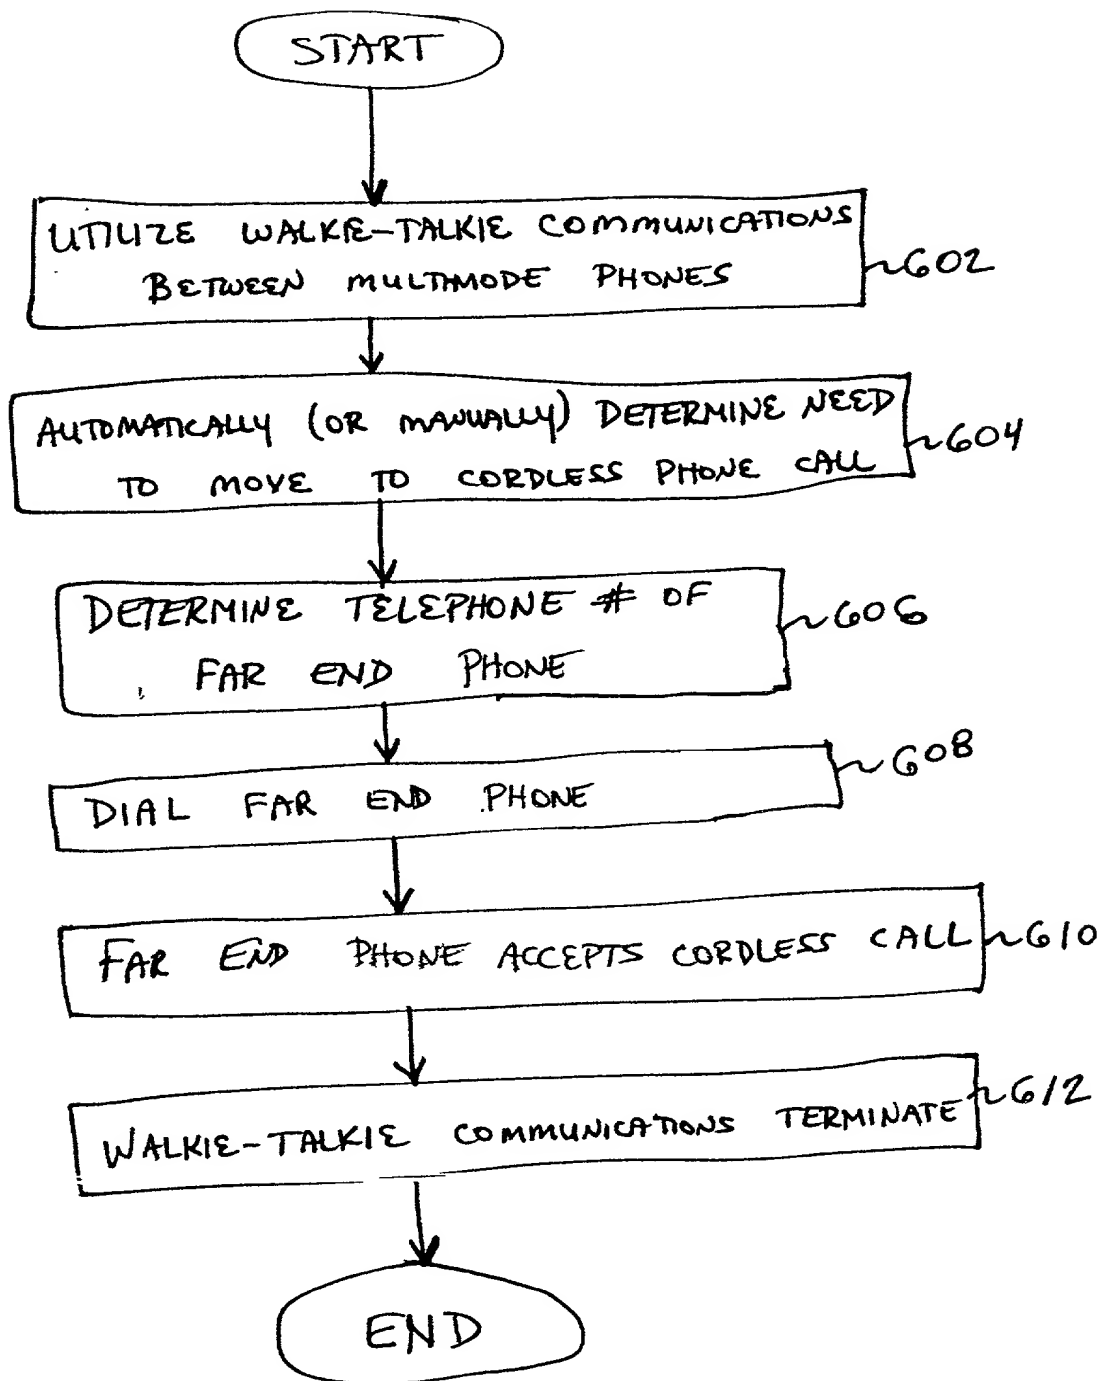 START
UTILIZE WALKIE-TALKIE COMMUNICATIONS
BETWEEN MULTIMODE PHONES
602
AUTOMATICALLY (OR MANUALLY) DETERMINE NEED
TO MOVE TO CORDLESS PHONE CALL
604
DETERMINE TELEPHONE # OF
FAR END PHONE
606
DIAL FAR END PHONE
608
FAR END PHONE ACCEPTS CORDLESS CALL
610
WALKIE-TALKIE COMMUNICATIONS TERMINATE
612
END